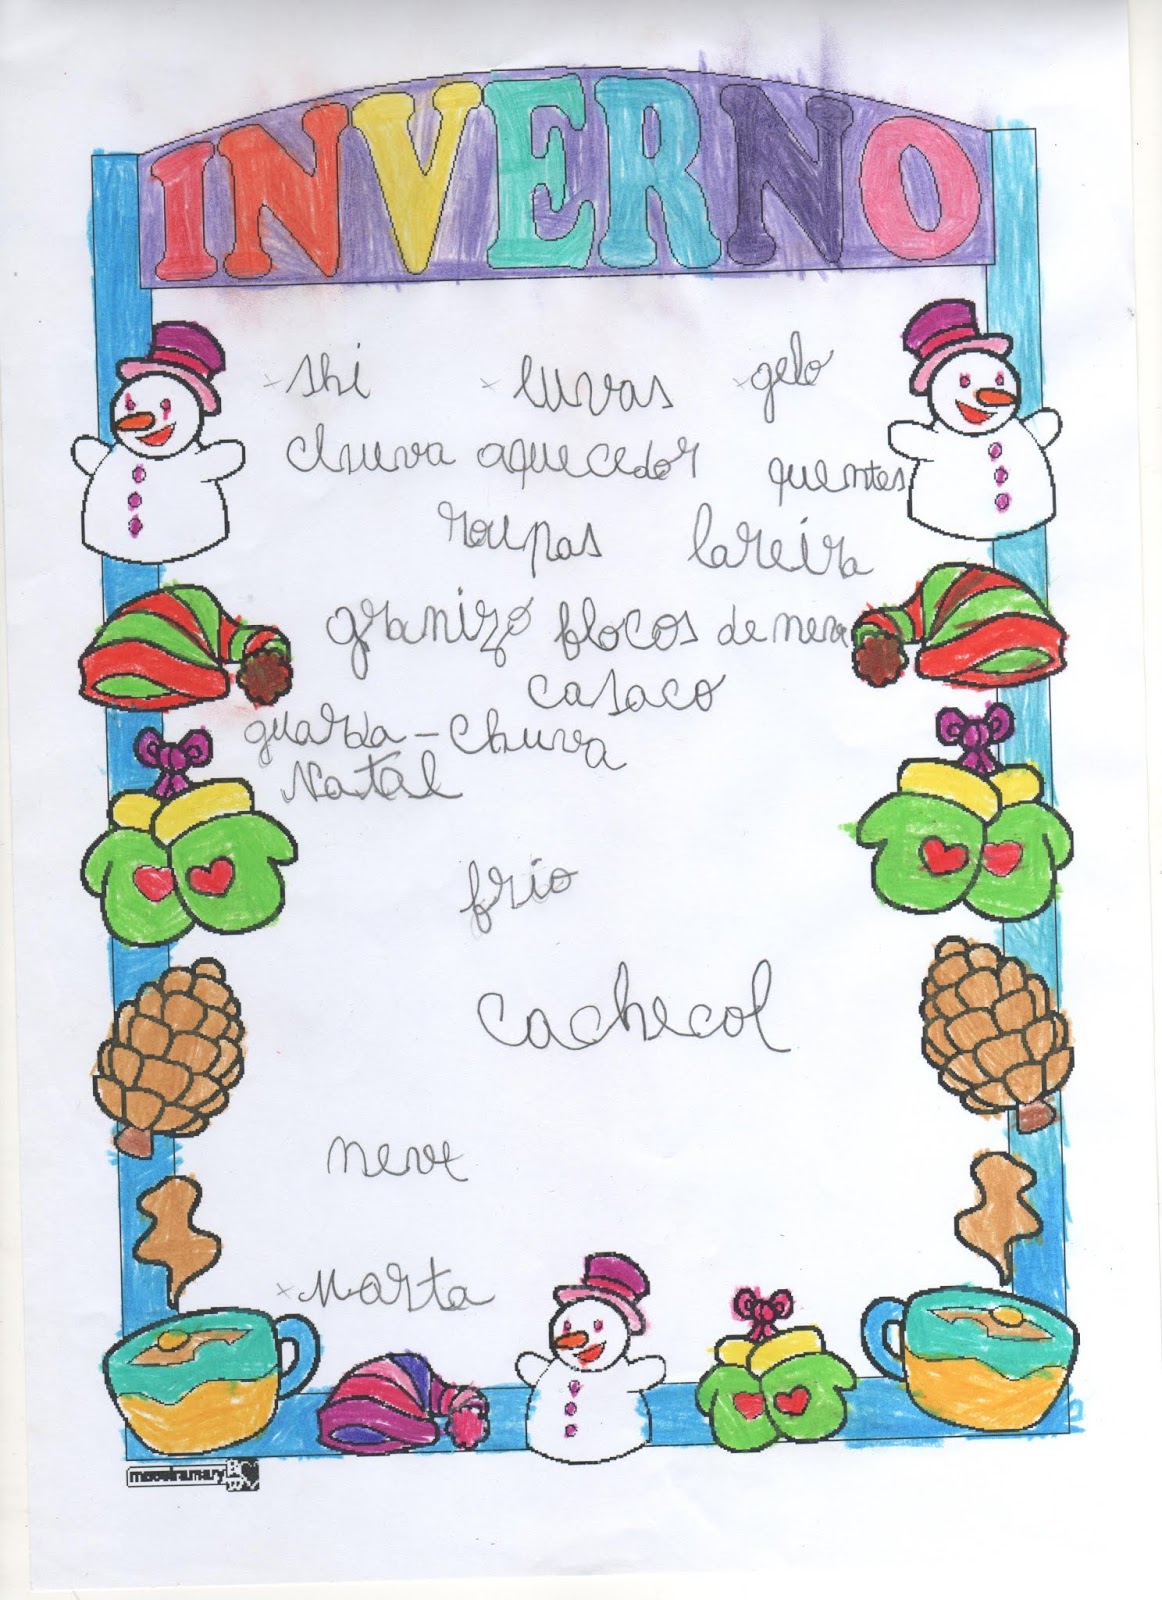 INVERNO
shi luvas gelo
chuva aquecedor quentes
roupas lareira
granizo flocos de neve
casaco
guarda-chuva
Natal
frio
cachecol
neve
Marta